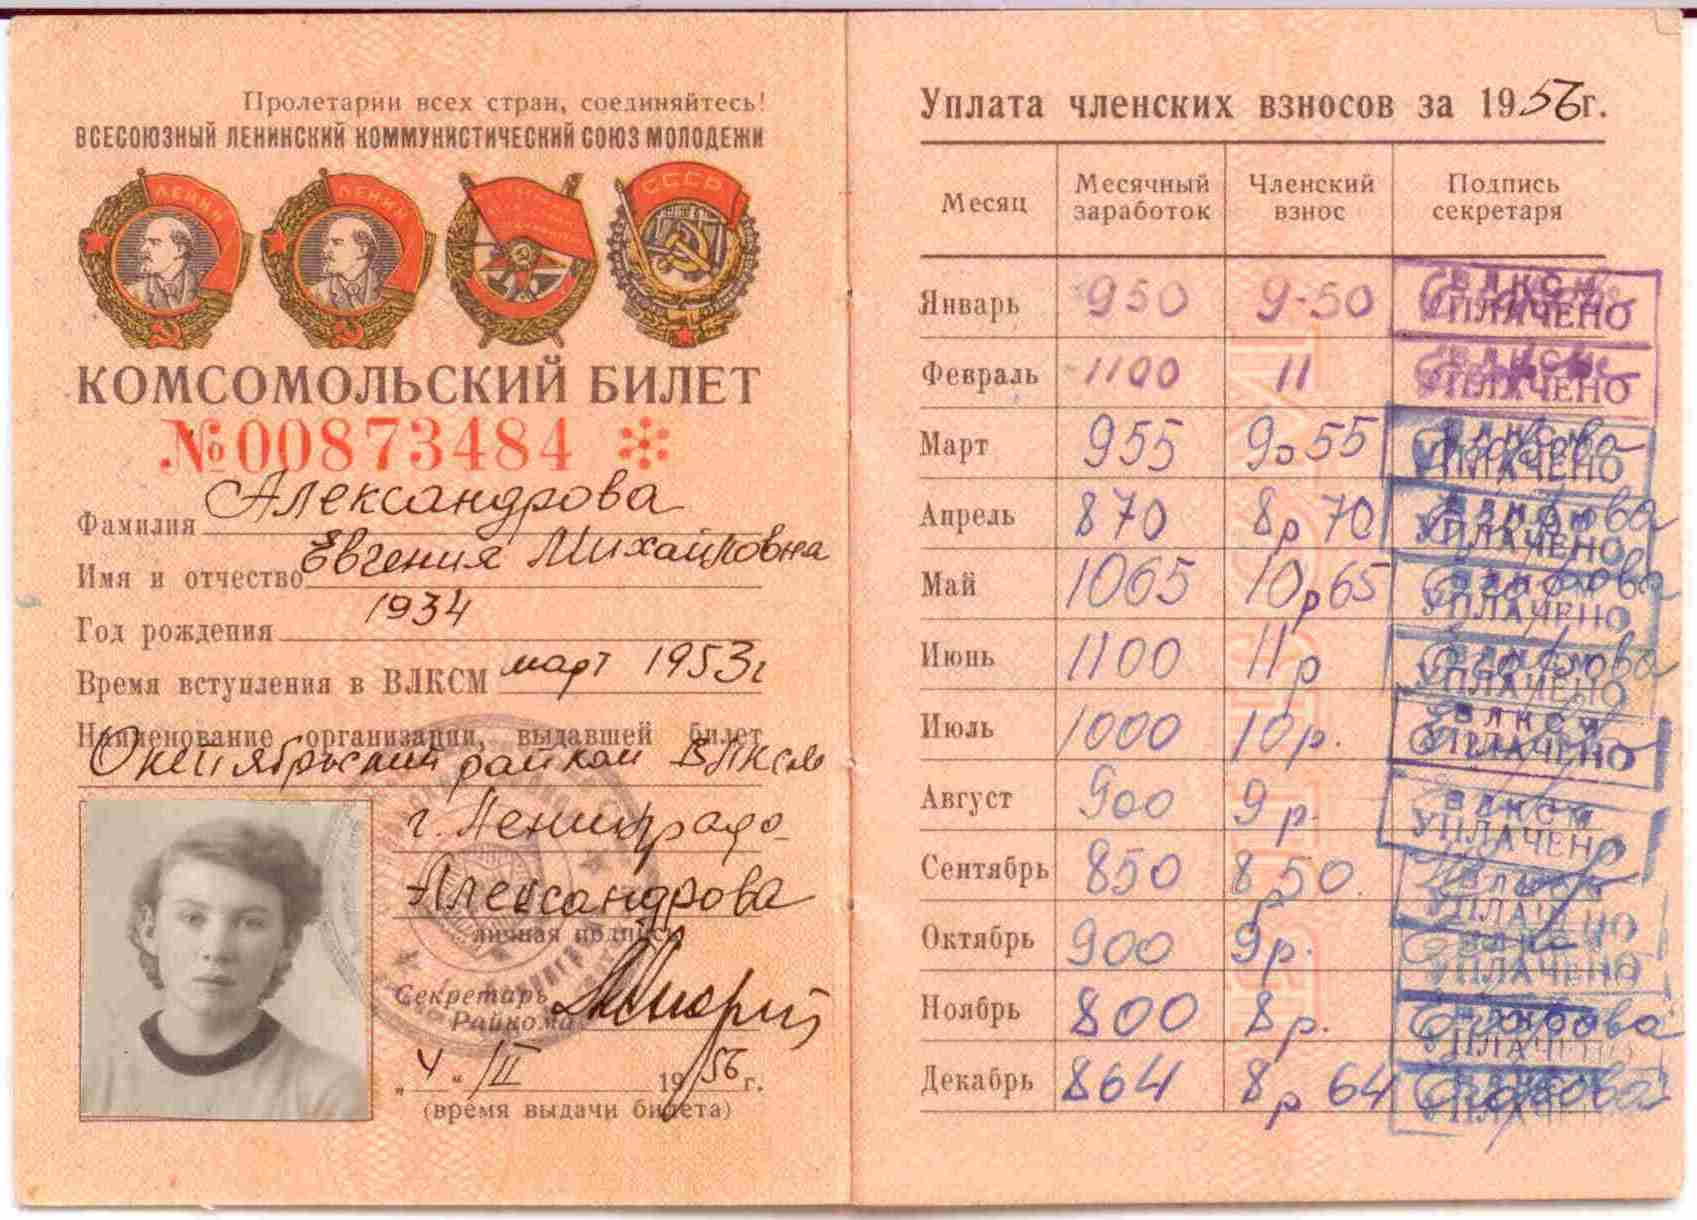 Пролетарии всех стран, соединяйтесь!
ВСЕСОЮЗНЫЙ ЛЕНИНСКИЙ КОММУНИСТИЧЕСКИЙ СОЮЗ МОЛОДЕЖИ
ЛЕНИН ЛЕНИН СССР
КОМСОМОЛЬСКИЙ БИЛЕТ
№00873484
Фамилия Александрова
Имя и отчество Евгения Михайловна
Год рождения 1934
Время вступления в ВЛКСМ март 1953г
Наименование организации, выдавшей билет
Октябрьский райком ВЛКСМ
г. Ленинграда
Александрова
личная подпись
Секретарь
Райкома
"4" III 1956 г.
(время выдачи билета)
Уплата членских взносов за 1956г.
Месяц Месячный заработок Членский взнос Подпись секретаря
Январь 950 9-50 ВЛКСМ УПЛАЧЕНО
Февраль 1100 11 ВЛКСМ УПЛАЧЕНО
Март 955 9р55 ВЛКСМ УПЛАЧЕНО
Апрель 870 8р70 ВЛКСМ УПЛАЧЕНО
Май 1065 10р65 ВЛКСМ УПЛАЧЕНО
Июнь 1100 11р ВЛКСМ УПЛАЧЕНО
Июль 1000 10р. ВЛКСМ УПЛАЧЕНО
Август 900 9р. ВЛКСМ УПЛАЧЕНО
Сентябрь 850 8р50. ВЛКСМ УПЛАЧЕНО
Октябрь 900 9р. ВЛКСМ УПЛАЧЕНО
Ноябрь 800 8р. ВЛКСМ УПЛАЧЕНО
Декабрь 864 8р64 ВЛКСМ УПЛАЧЕНО